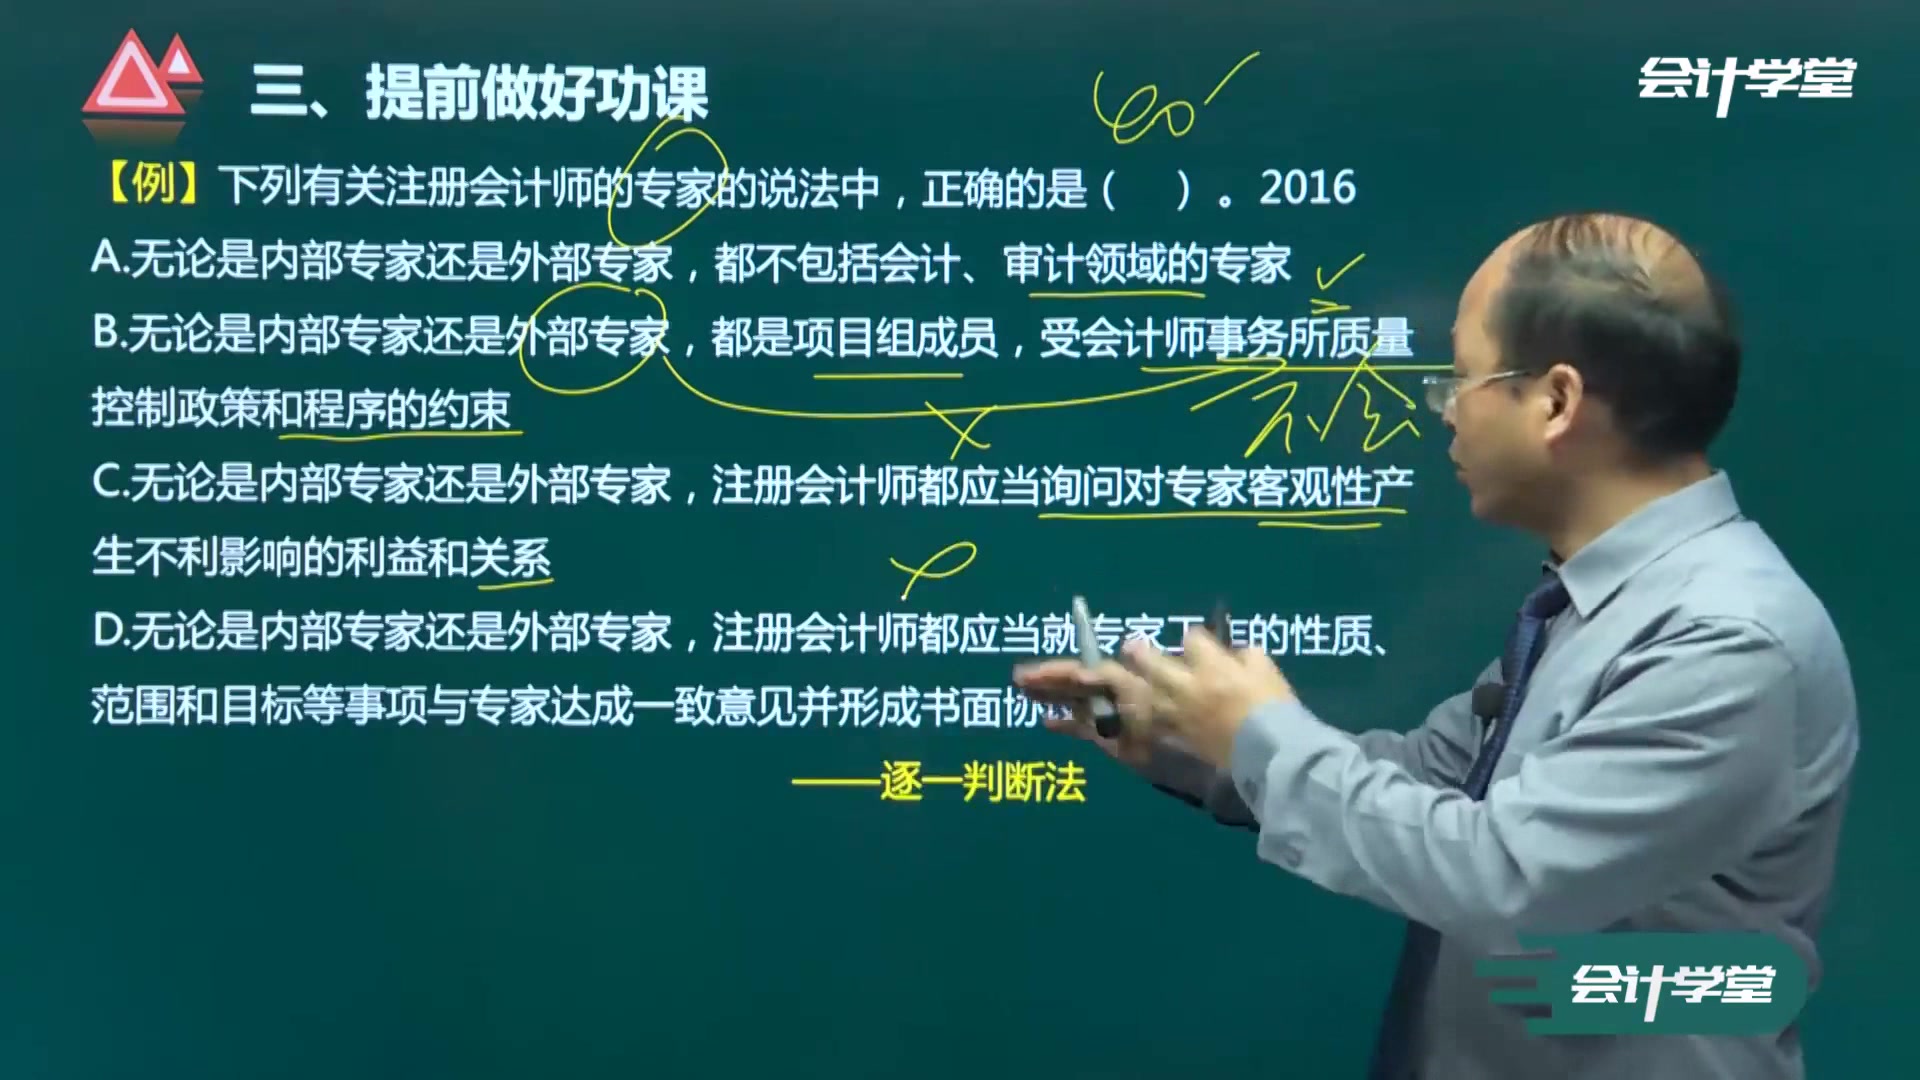 三、提前做好功课
会计学堂
60
【例】下列有关注册会计师的专家的说法中，正确的是（ ）。2016
A.无论是内部专家还是外部专家，都不包括会计、审计领域的专家
B.无论是内部专家还是外部专家，都是项目组成员，受会计师事务所质量
控制政策和程序的约束
C.无论是内部专家还是外部专家，注册会计师都应当询问对专家客观性产
生不利影响的利益和关系
D.无论是内部专家还是外部专家，注册会计师都应当就专家工作的性质、
范围和目标等事项与专家达成一致意见并形成书面协
——逐一判断法
会计学堂